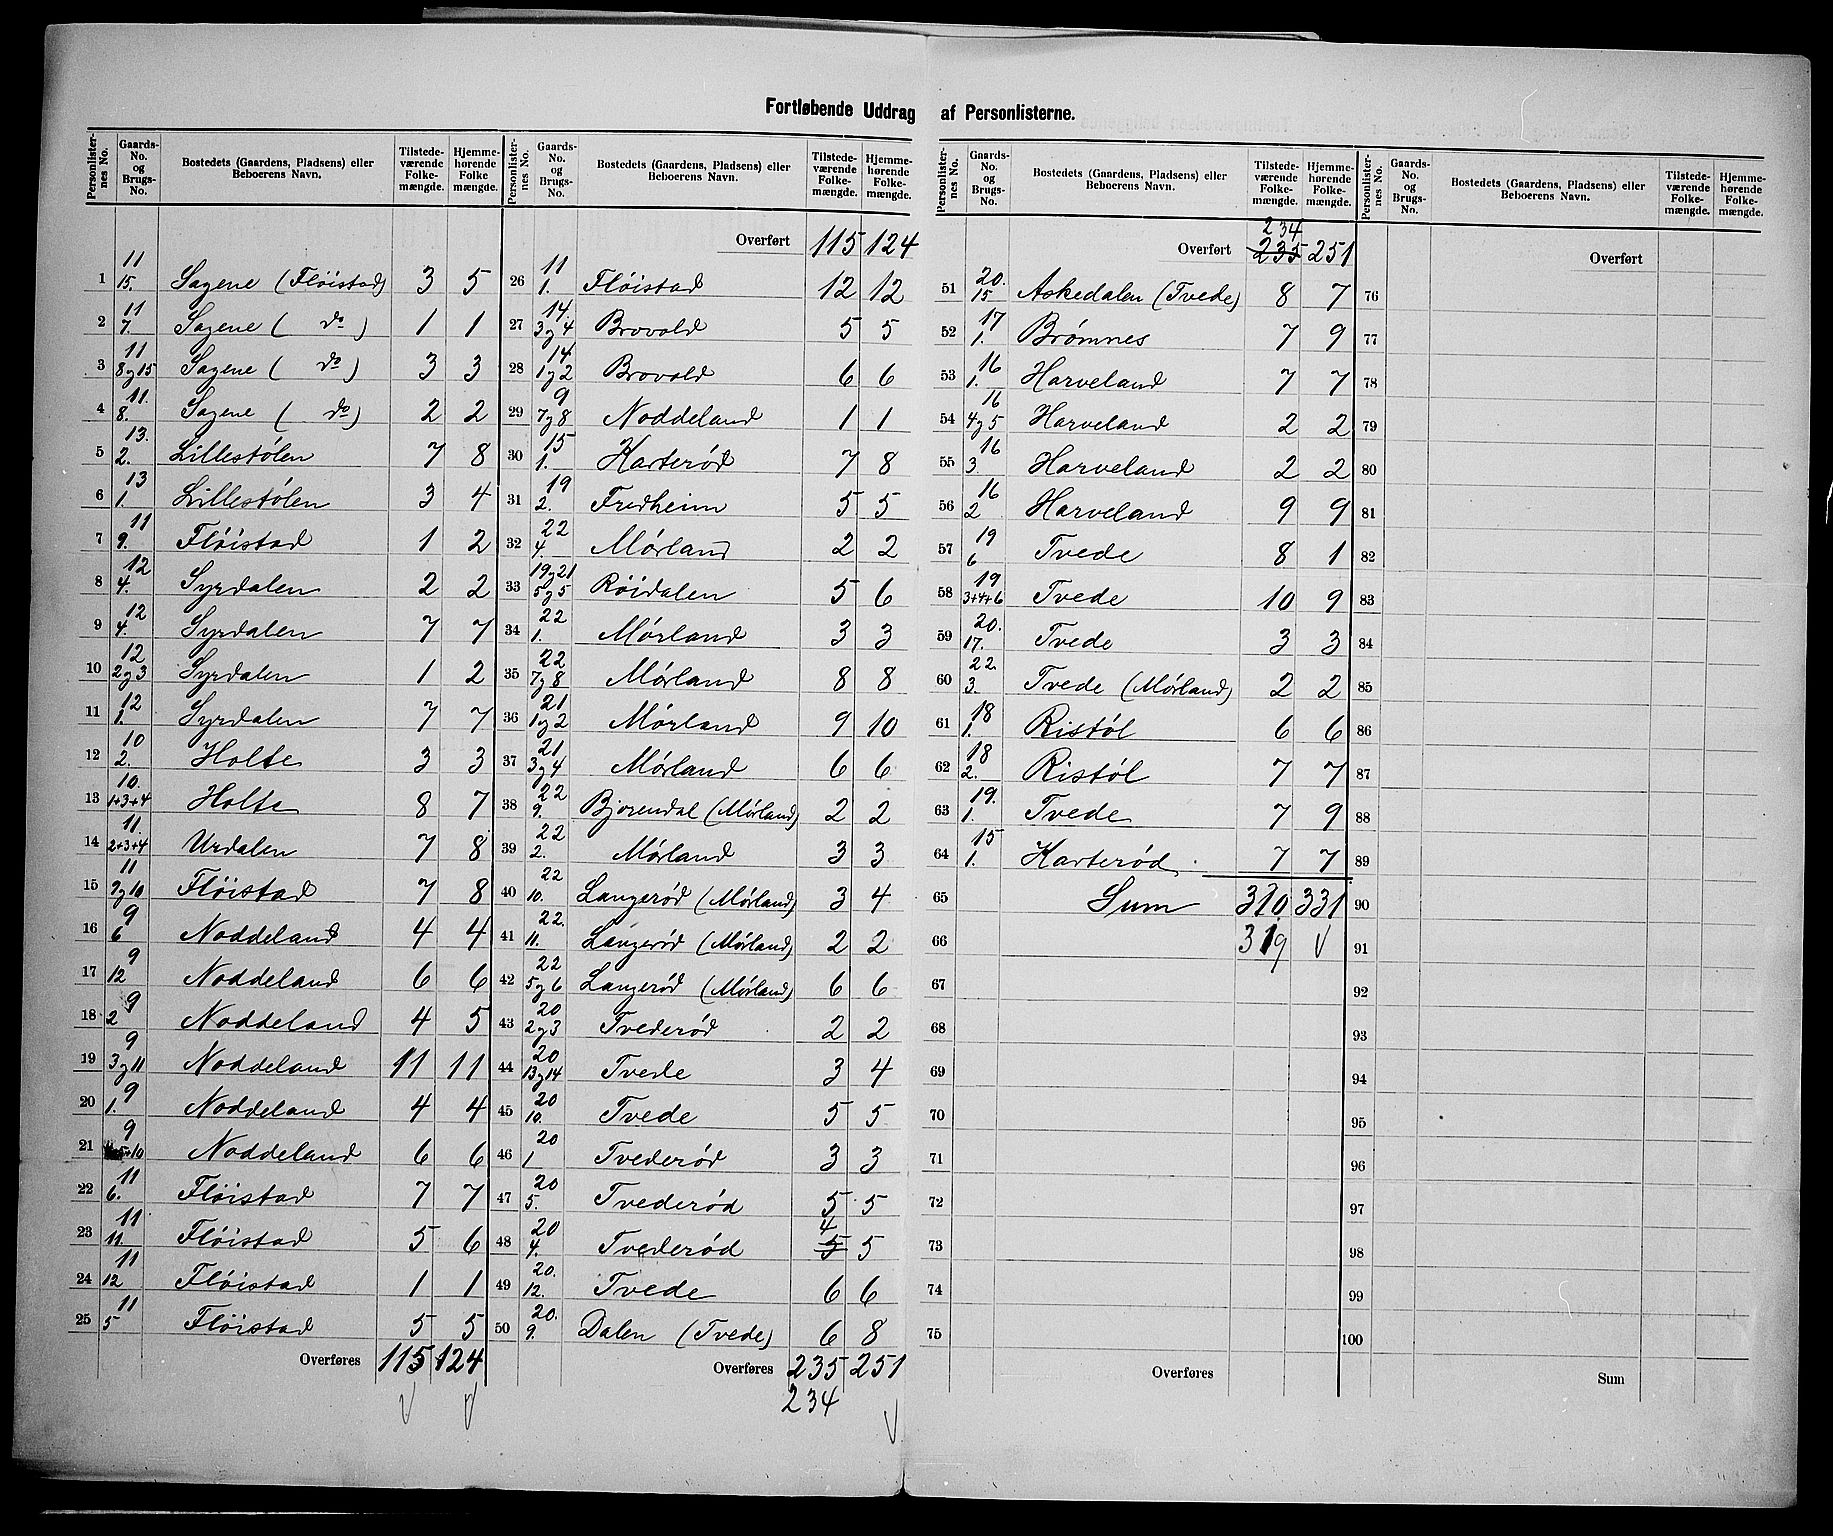 Fortløbende Uddrag af Personlisterne.
Personlister-nes No. | Gaards-No. og Brugs-No. | Bostedets (Gaardens, Pladsens) eller Beboerens Navn. | Tilstede-værende Folke-mængde. | Hjemme-hørende Folke mængde.
1 | 11 15. | Sagene (Fløistad) | 3 | 5
2 | 11 7. | Sagene ( do ) | 1 | 1
3 | 11 8 og 15 | Sagene ( do ) | 3 | 3
4 | 11. 8. | Sagene ( do ) | 2 | 2
5 | 13. 2. | Lillestølen | 7 | 8
6 | 13 1. | Lillestølen | 3 | 4
7 | 11 9. | Fløistad | 1 | 2
8 | 12 4. | Syrdalen | 2 | 2
9 | 12 4. | Syrdalen | 7 | 7
10 | 12 2 og 3 | Syrdalen | 1 | 2
11 | 12 1. | Syrdalen | 7 | 7
12 | 10 2. | Holte | 3 | 3
13 | 10. 1+3+4 | Holte | 8 | 7
14 | 11. 2+3+4 | Urdalen | 7 | 8
15 | 11 7 og 10 | Fløistad | 7 | 8
16 | 9 6 | Noddeland | 4 | 4
17 | 9 12 | Noddeland | 6 | 6
18 | 9 2 | Noddeland | 4 | 5
19 | 9 3 og 11 | Noddeland | 11 | 11
20 | 9 1. | Noddeland | 4 | 4
21 | 9 5+10 | Noddeland | 6 | 6
22 | 11 6. | Fløistad | 7 | 7
23 | 11 11. | Fløistad | 5 | 6
24 | 11 12 | Fløistad | 1 | 1
25 | 11 5 | Fløistad | 5 | 5
Overføres 115 124
Personlister-nes No. | Gaards-No. og Brugs-No. | Bostedets (Gaardens, Pladsens) eller Beboerens Navn. | Tilstede-værende Folke-mængde. | Hjemme-hørende Folke-mængde.
Overført 115 124
26 | 11 1. | Fløistad | 12 | 12
27 | 14. 3 og 4 | Brovold | 5 | 5
28 | 14. 1 og 2 | Brovold | 6 | 6
29 | 9 7 og 8 | Noddeland | 1 | 1
30 | 15 1. | Karterød | 7 | 8
31 | 19 2. | Fredheim | 5 | 5
32 | 22 4. | Mørland | 2 | 2
33 | 19 og 21 5 og 5 | Røidalen | 5 | 6
34 | 22 1. | Mørland | 3 | 3
35 | 22 7 og 8 | Mørland | 8 | 8
36 | 21 1 og 2 | Mørland | 9 | 10
37 | 21 3 og 4 | Mørland | 6 | 6
38 | 22 9. | Bjorendal (Mørland) | 2 | 2
39 | 22 2. | Mørland | 3 | 3
40 | 22 10. | Langerød (Mørland) | 3 | 4
41 | 22. 11. | Langerød (Mørland) | 2 | 2
42 | 22 5 og 6 | Langerød (Mørland) | 6 | 6
43 | 20 2 og 3 | Tvederød | 2 | 2
44 | 20 13 og 14 | Tvede | 3 | 4
45 | 20 10. | Tvede | 5 | 5
46 | 20 1 | Tvederød | 3 | 3
47 | 20 5. | Tvederød | 5 | 5
48 | 20 4. | Tvederød | 4 5 | 5
49 | 20. 12. | Tvede | 6 | 6
50 | 20. 9. | Dalen (Tvede) | 6 | 8
Overføres 235 251
234
Personlister-nes No. | Gaards-No. og Brugs-No. | Bostedets (Gaardens, Pladsens) eller Beboerens Navn. | Tilstede-værende Folke-mængde. | Hjemme-hørende Folke-mængde.
234
Overført 235 251
51 | 20. 15 | Askedalen (Tvede) | 8 | 7
52 | 17 1. | Brømnes | 7 | 9
53 | 16 1. | Harveland | 7 | 7
54 | 16 4 og 5 | Harveland | 2 | 2
55 | 16 3. | Harveland | 2 | 2
56 | 16 2 | Harveland | 9 | 9
57 | 19 6 | Tvede | 8 | 1
58 | 19 3+4+6 | Tvede | 10 | 9
59 | 20. 17. | Tvede | 3 | 3
60 | 22. 3. | Tvede (Mørland) | 2 | 2
61 | 18 1. | Ristøl | 6 | 6
62 | 18 2. | Ristøl | 7 | 7
63 | 19. 1. | Tvede | 7 | 9
64 | 15 1. | Karterød. | 7 | 7
65 | Sum | 310 | 331
66 | 319
67
68
69
70
71
72
73
74
75
Overføres
Personlister-nes No. | Gaards-No. og Brugs-No. | Bostedets (Gaardens, Pladsens) eller Beboerens Navn. | Tilstede-værende Folke-mængde. | Hjemme-hørende Folke-mængde.
Overført
76
77
78
79
80
81
82
83
84
85
86
87
88
89
90
91
92
93
94
95
96
97
98
99
100
Sum